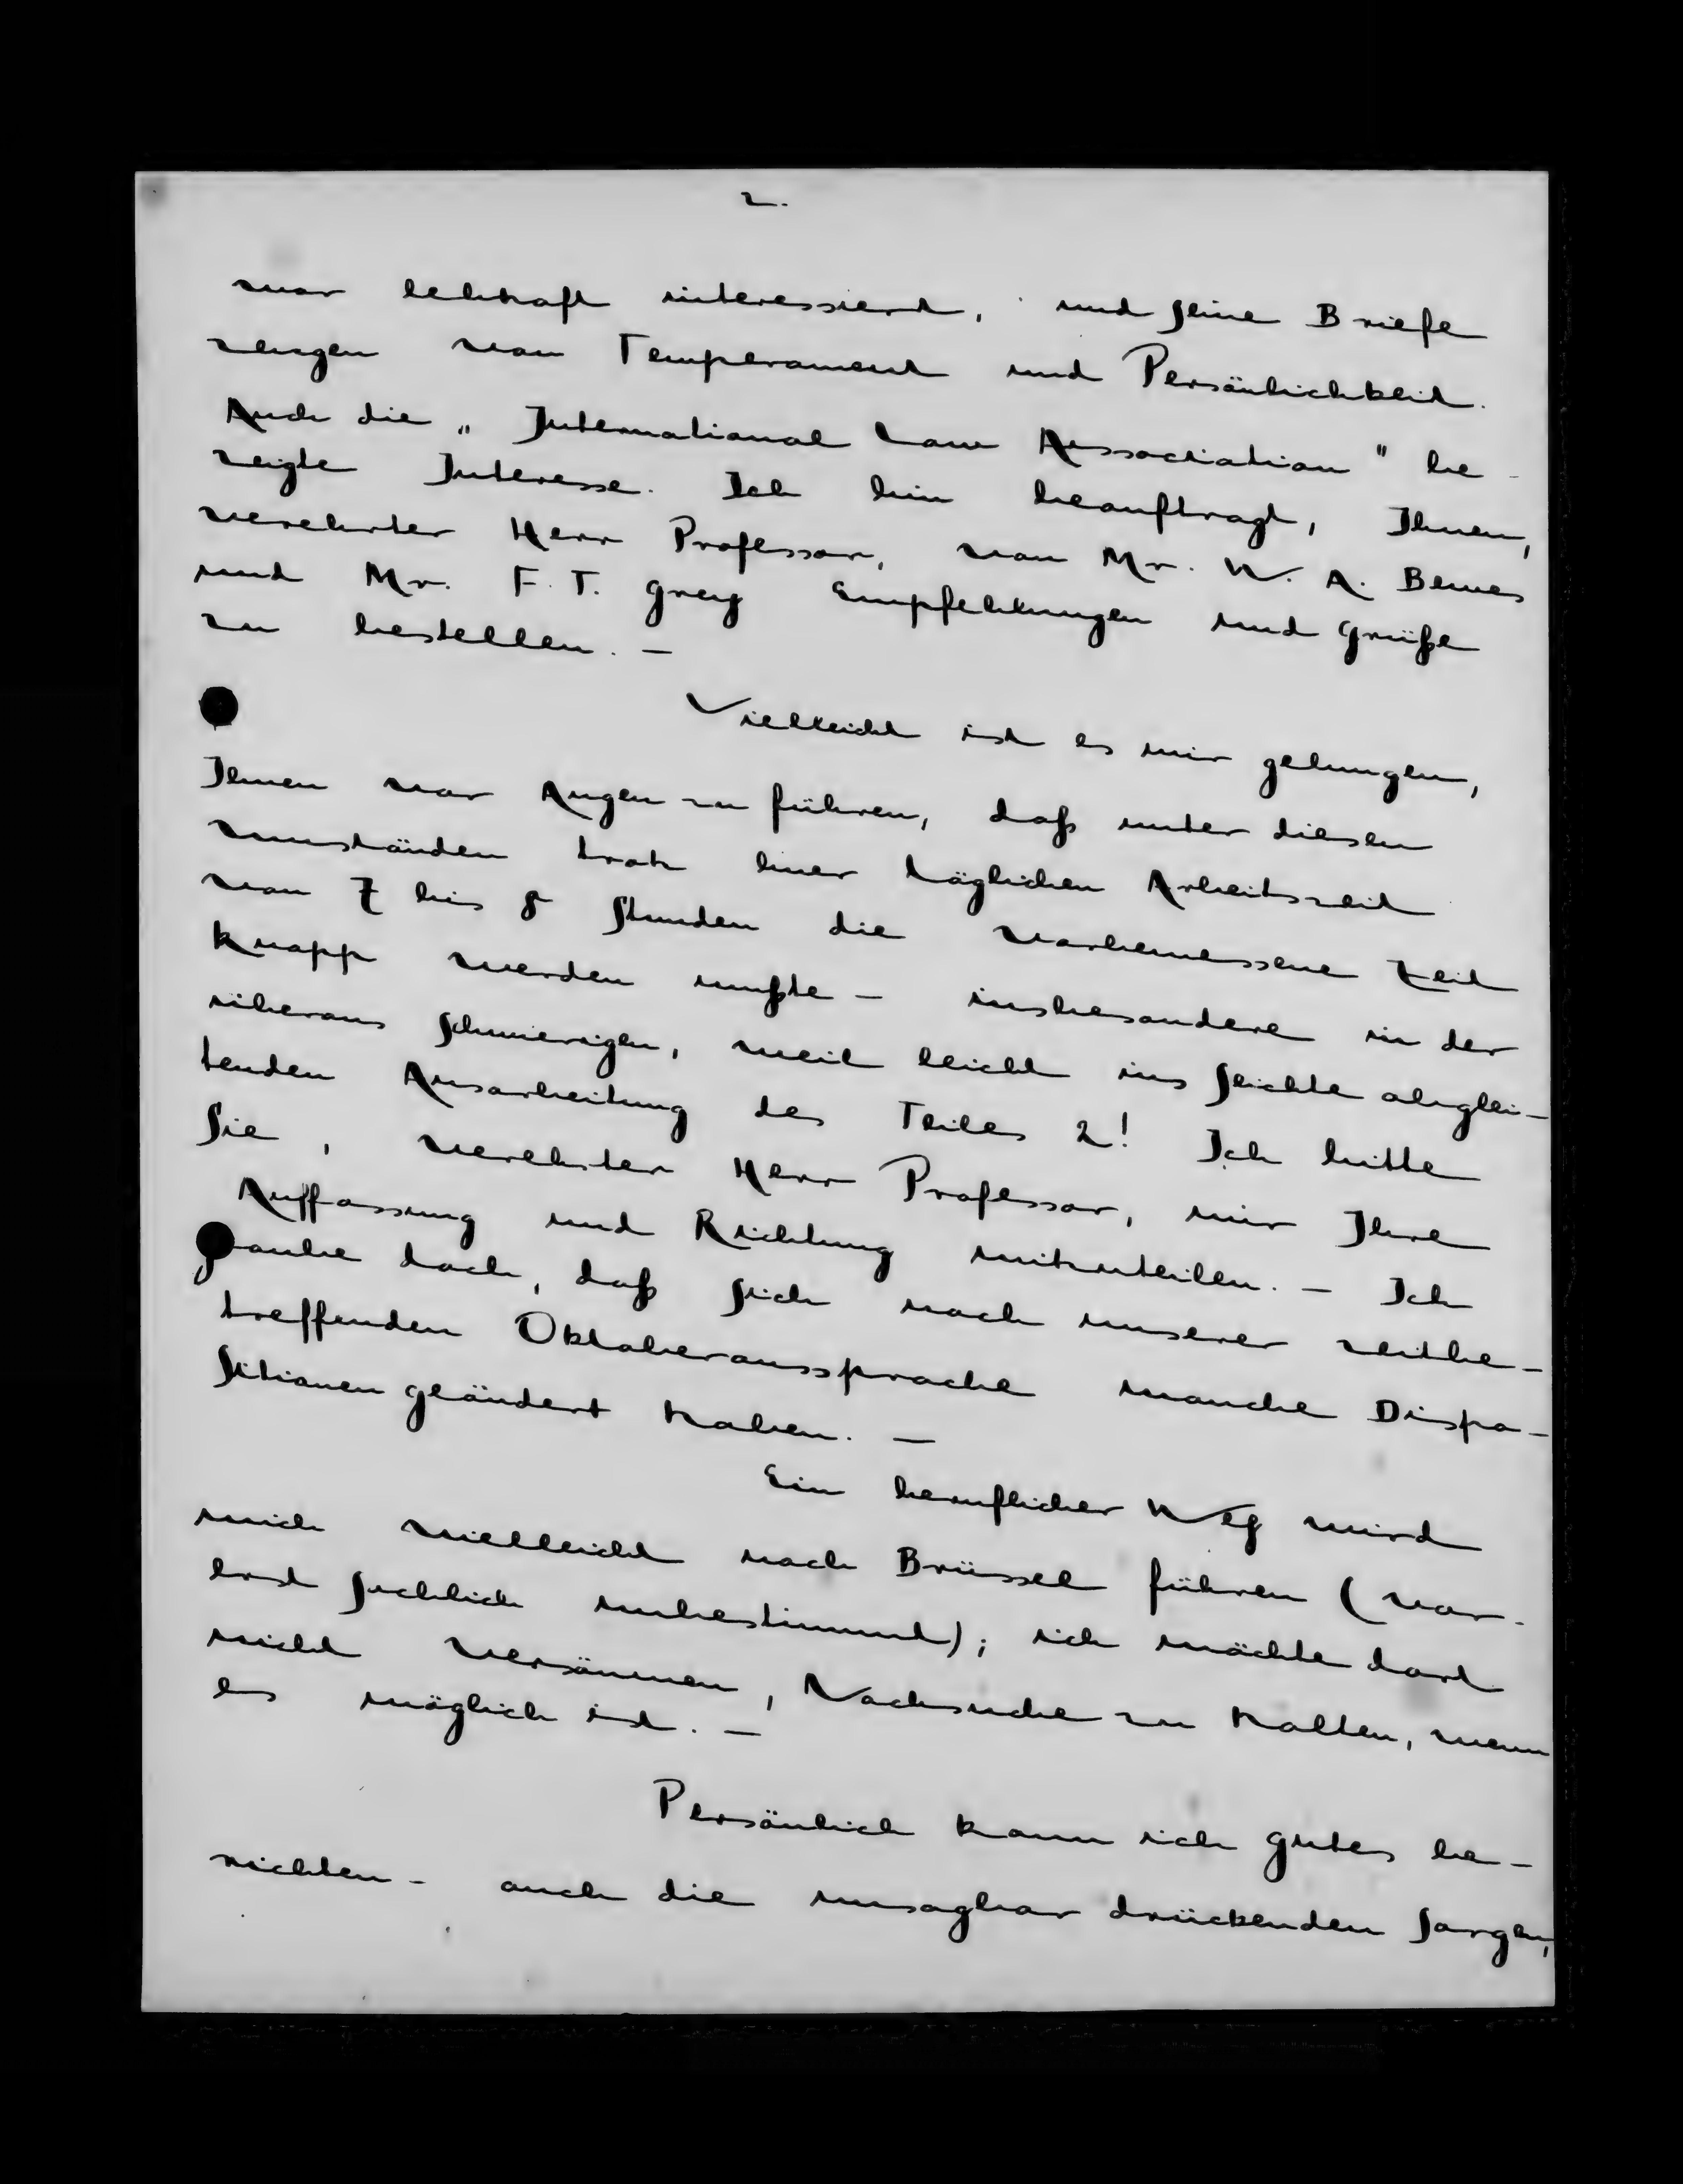 2.
war lebhaft interessiert, und seine Briefe
zeugen von Temperament und Persönlichkeit.
Auch die „International Law Association" be-
zeigte Interesse. Ich bin beauftragt, Ihnen,
verehrter Herr Professor, von Mr. W. A. Bewes
und Mr. F. T. Grey Empfehlungen und Grüße
zu bestellen. –
Vielleicht ist es mir gelungen,
Ihnen vor Augen zu führen, daß unter diesen
Umständen trotz einer täglichen Arbeitszeit
von 7 bis 8 Stunden die vorbemessene Zeit
knapp werden mußte – insbesondere in der
überaus schwierigen, weil leicht ins Seichte abglei-
tenden Ausarbeitung des Teiles 2! Ich bitte
Sie, verehrter Herr Professor, mir Ihre
Auffassung und Richtung mitzuteilen. – Ich
glaube doch, daß sich nach unserer zeitbe-
treffenden Oktoberaussprache manche Dispo-
sitionen geändert haben. –
Ein beruflicher Weg wird
mich vielleicht nach Brüssel führen (vor-
erst zeitlich unbestimmt); ich möchte dort
nicht versäumen, Nachsuche zu halten, wenn
es möglich ist. –
Persönlich kann ich gutes be-
richten – auch die unsagbar drückenden Sorgen,